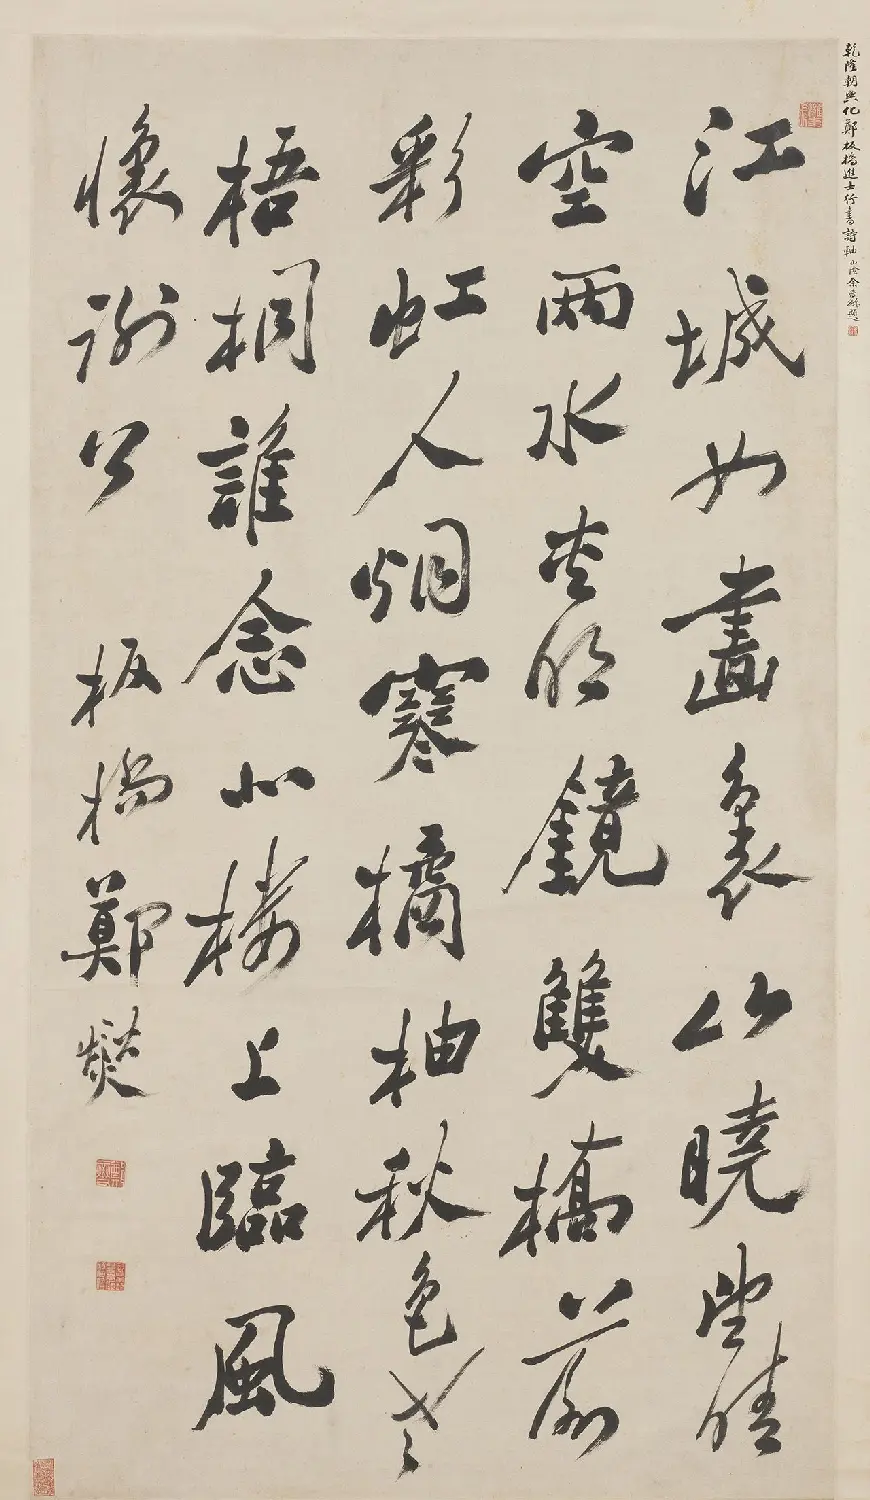 乾隆朝興化鄭板橋進士行書詩軸 山陰余題
江城如畫裏山曉望晴
空兩水夾明鏡雙橋落
彩虹人烟寒橘柚秋色老
梧桐誰念北樓上臨風
懷謝公 板橋鄭燮